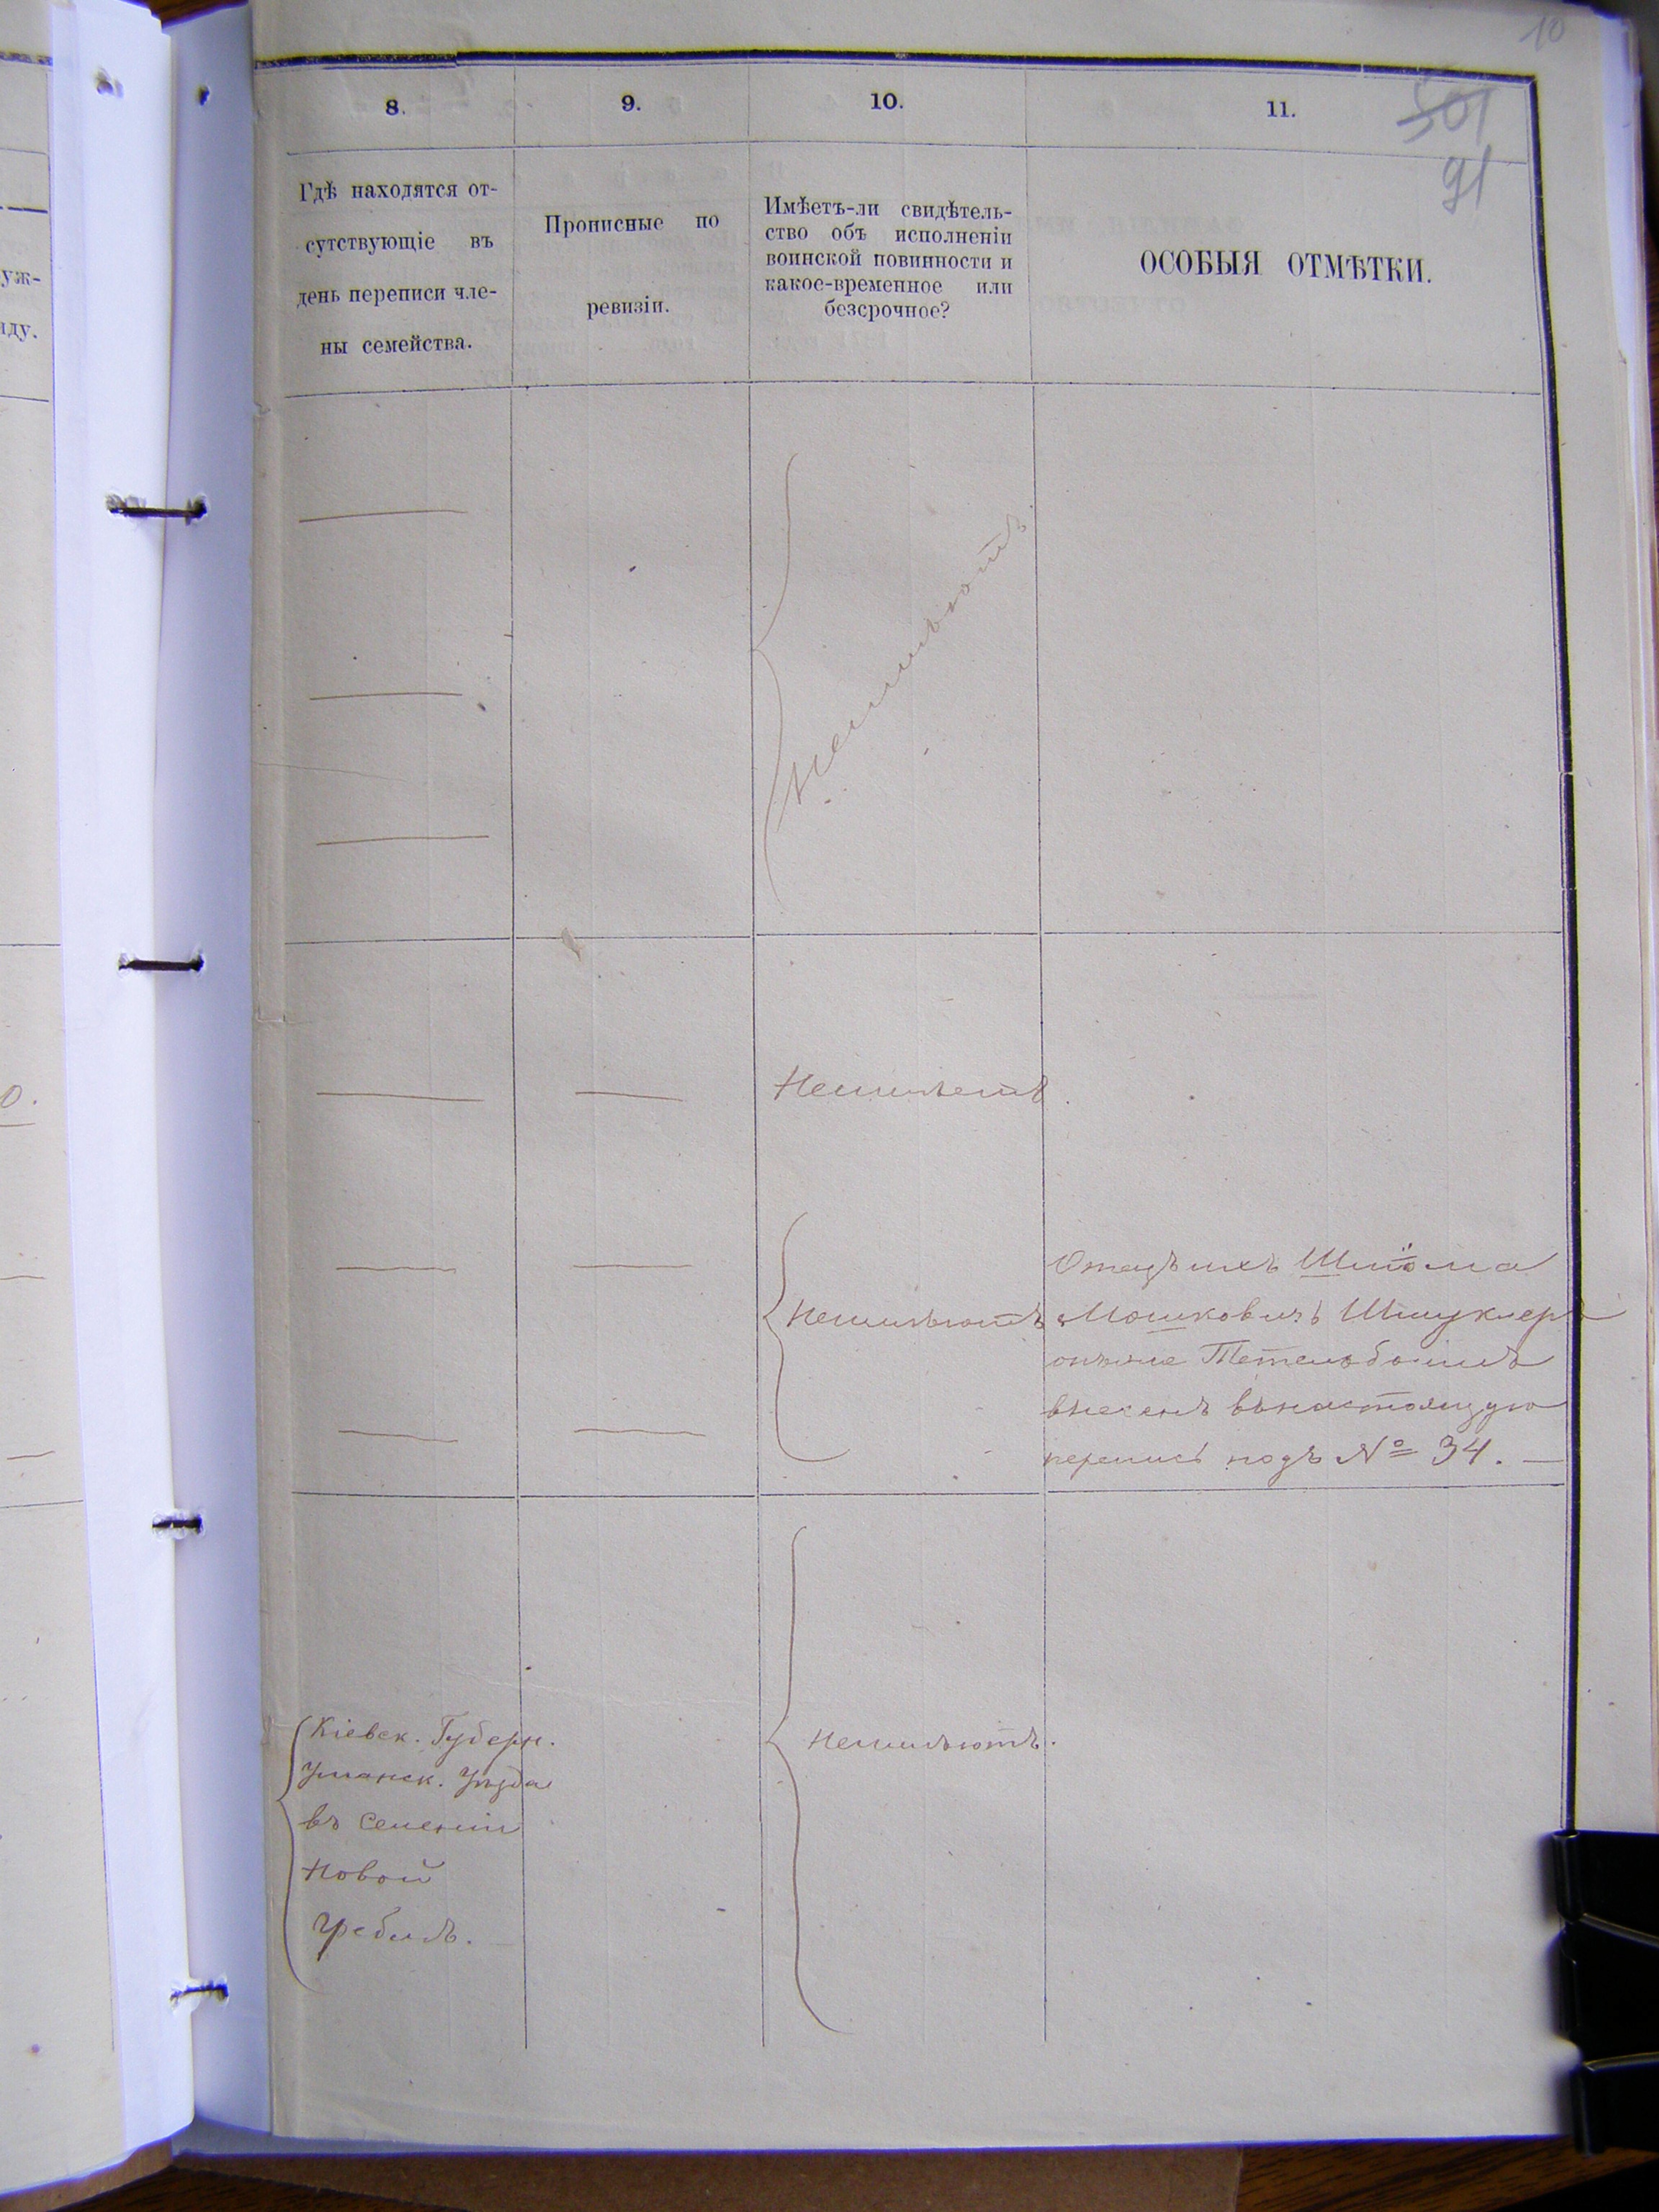 10
501
91
8.
9.
10.
11.
Гдѣ находятся от-
сутствующіе въ
день переписи чле-
ны семейства.
Прописные по
ревизіи.
Имѣетъ-ли свидѣтель-
ство объ исполненіи
воинской повинности и
какое-временное или
безсрочное?
ОСОБЫЯ ОТМѢТКИ.
уж-
иду.
Неимѣютъ
0.
Неимѣетъ
Неимѣютъ
Отецъ ихъ
Мошковичъ Шмуклеръ
онъже
внесенъ внастоящую
перепись подъ № 34.
Кіевск. Губерн.
Уманск. Уѣзда
въ селеніи
Новой
Гребли.
Неимѣютъ.